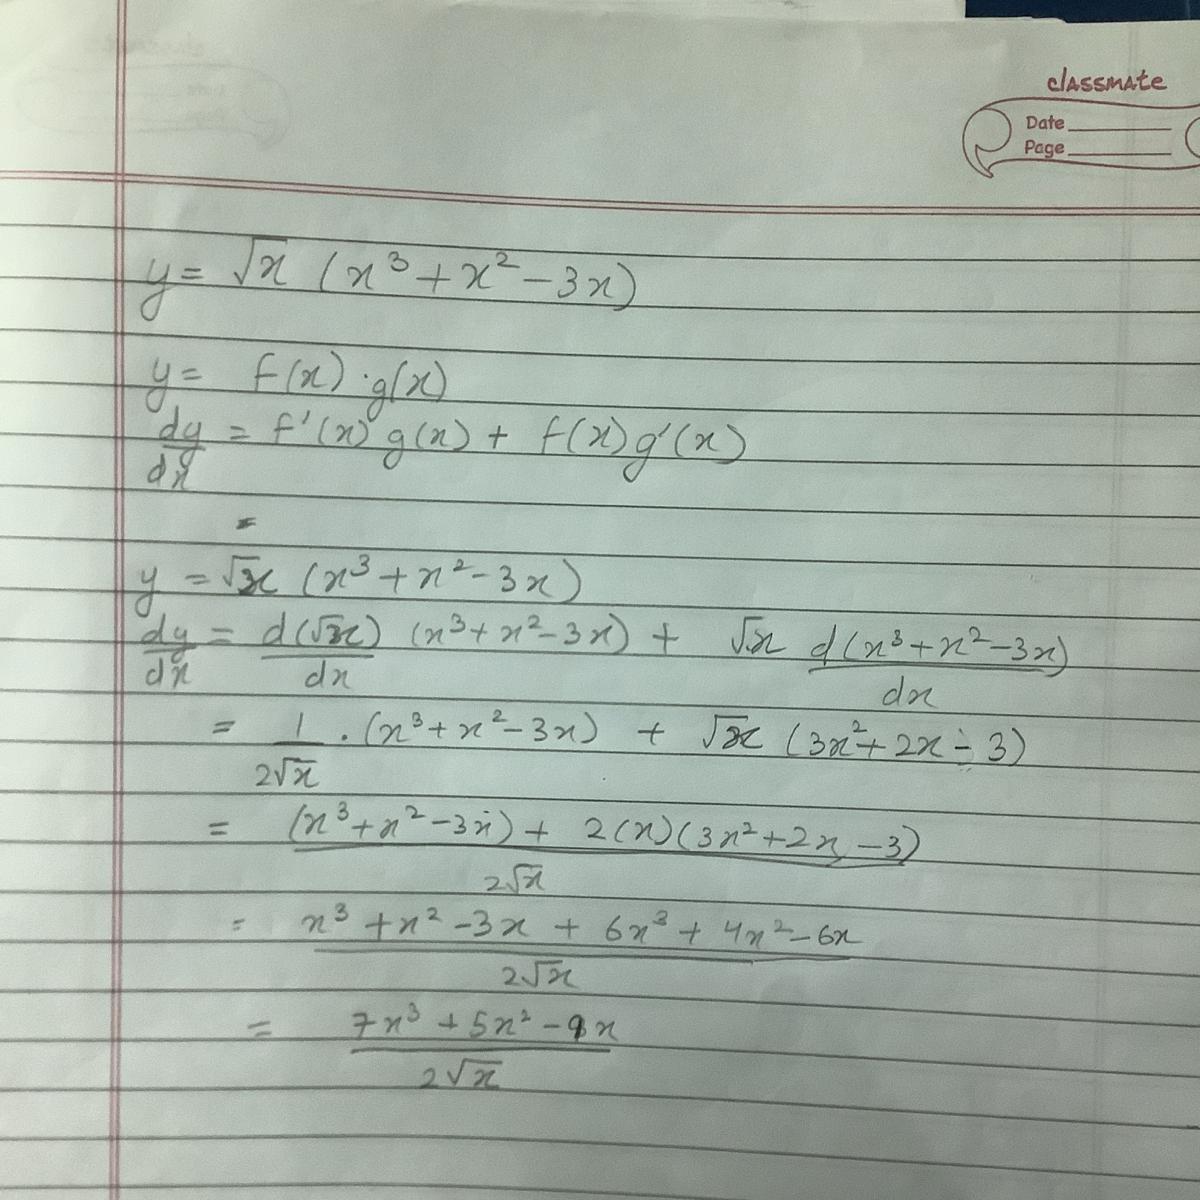 classmate
Date
Page
y = √x (x³ + x² - 3x)
y = f(x) · g(x)
dy/dx = f'(x) g(x) + f(x) g'(x)
=
y = √x (x³ + x² - 3x)
dy/dx = d(√x)/dx (x³ + x² - 3x) + √x d(x³ + x² - 3x)/dx
= 1/2√x . (x³ + x² - 3x) + √x (3x² + 2x - 3)
= (x³ + x² - 3x) + 2(x)(3x² + 2x - 3)/2√x
= x³ + x² - 3x + 6x³ + 4x² - 6x/2√x
= 7x³ + 5x² - 9x/2√x